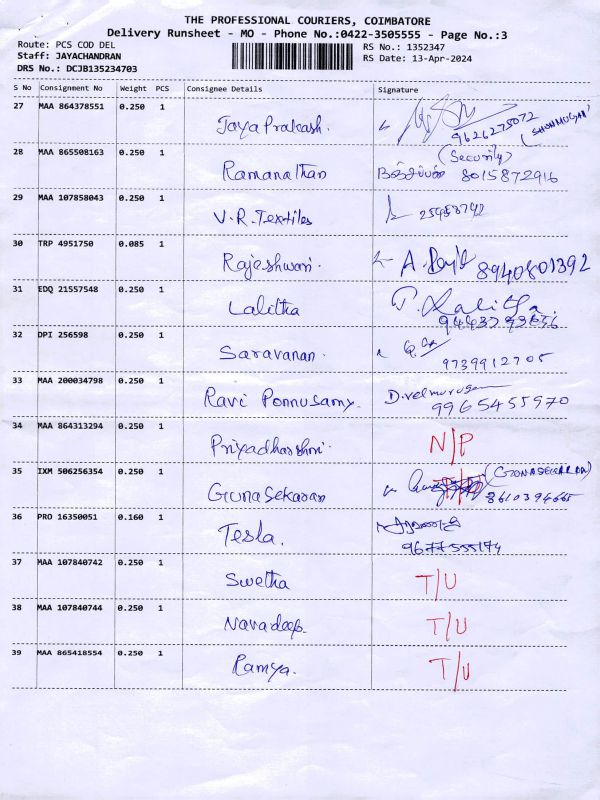 THE PROFESSIONAL COURIERS, COIMBATORE
Delivery Runsheet - MO - Phone No.:0422-3505555 - Page No.:3
Route: PCS COD DEL
RS No.: 1352347
Staff: JAYACHANDRAN
RS Date: 13-Apr-2024
DRS No.: DCJB135234703
S No Consignment No Weight PCS Consignee Details Signature
27 MAA 864378551 0.250 1 JayaPrakash. 9626275072 (SHONMUGAM)
28 MAA 865508163 0.250 1 Ramanathan (Security) 8015872916
29 MAA 107858043 0.250 1 V.R.Textiles
30 TRP 4951750 0.085 1 Rajeshwari. 8940801392
31 EDQ 21557548 0.250 1 Lalitha P. Lalitha.
32 DPI 256598 0.250 1 Saravanan. 9739912705
33 MAA 200034798 0.250 1 Ravi Ponnusamy. D.velmurugan 9965455970
34 MAA 864313294 0.250 1 Priyadharshni. N/P
35 IXM 506256354 0.250 1 GunaSekaran (GONASEKARAN) 8610394665
36 PRO 16350051 0.160 1 Tesla. 9677555174
37 MAA 107840742 0.250 1 Swetha T/U
38 MAA 107840744 0.250 1 Navadeep. T/U
39 MAA 865418554 0.250 1 Ramya. T/U